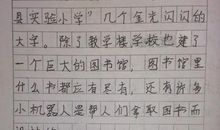 县实验小学”几个金光闪闪的
大字。除了教学楼学校也建了
一个巨大的图书馆，图书馆里
什么书都应有尽有，还有许多
小机器人是帮人们拿取图书而